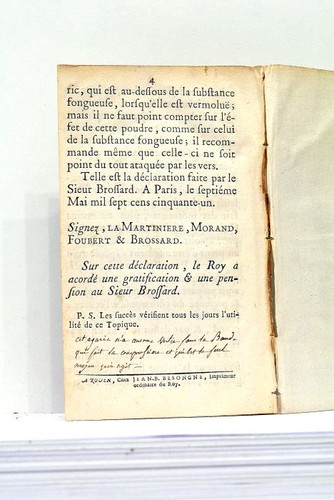 4
ric, qui est au-dessous de la substance
fongueuse, lorsqu'elle est vermoluë;
mais il ne faut point compter sur l'é-
fet de cette poudre, comme sur celui
de la substance fongueuse; il recom-
mande même que celle-ci ne soit
point du tout ataquée par les vers.
Telle est la déclaration faite par le
Sieur Brossard. A Paris, le septiéme
Mai mil sept cens cinquante-un.
Signez, LA MARTINIERE, MORAND,
FOUBERT & BROSSARD.
Sur cette déclaration, le Roy a
acordé une gratification & une pen-
sion au Sieur Brossard.
P. S. Les succès vérifient tous les jours l'uti-
lité de ce Topique.
cet agaric n'a aucune
qui fait la compression et qui est le seul
moyen qui agit
A ROUEN, Chez JEAN-B. BESONGNE, Imprimeur
ordinaire du Roy.